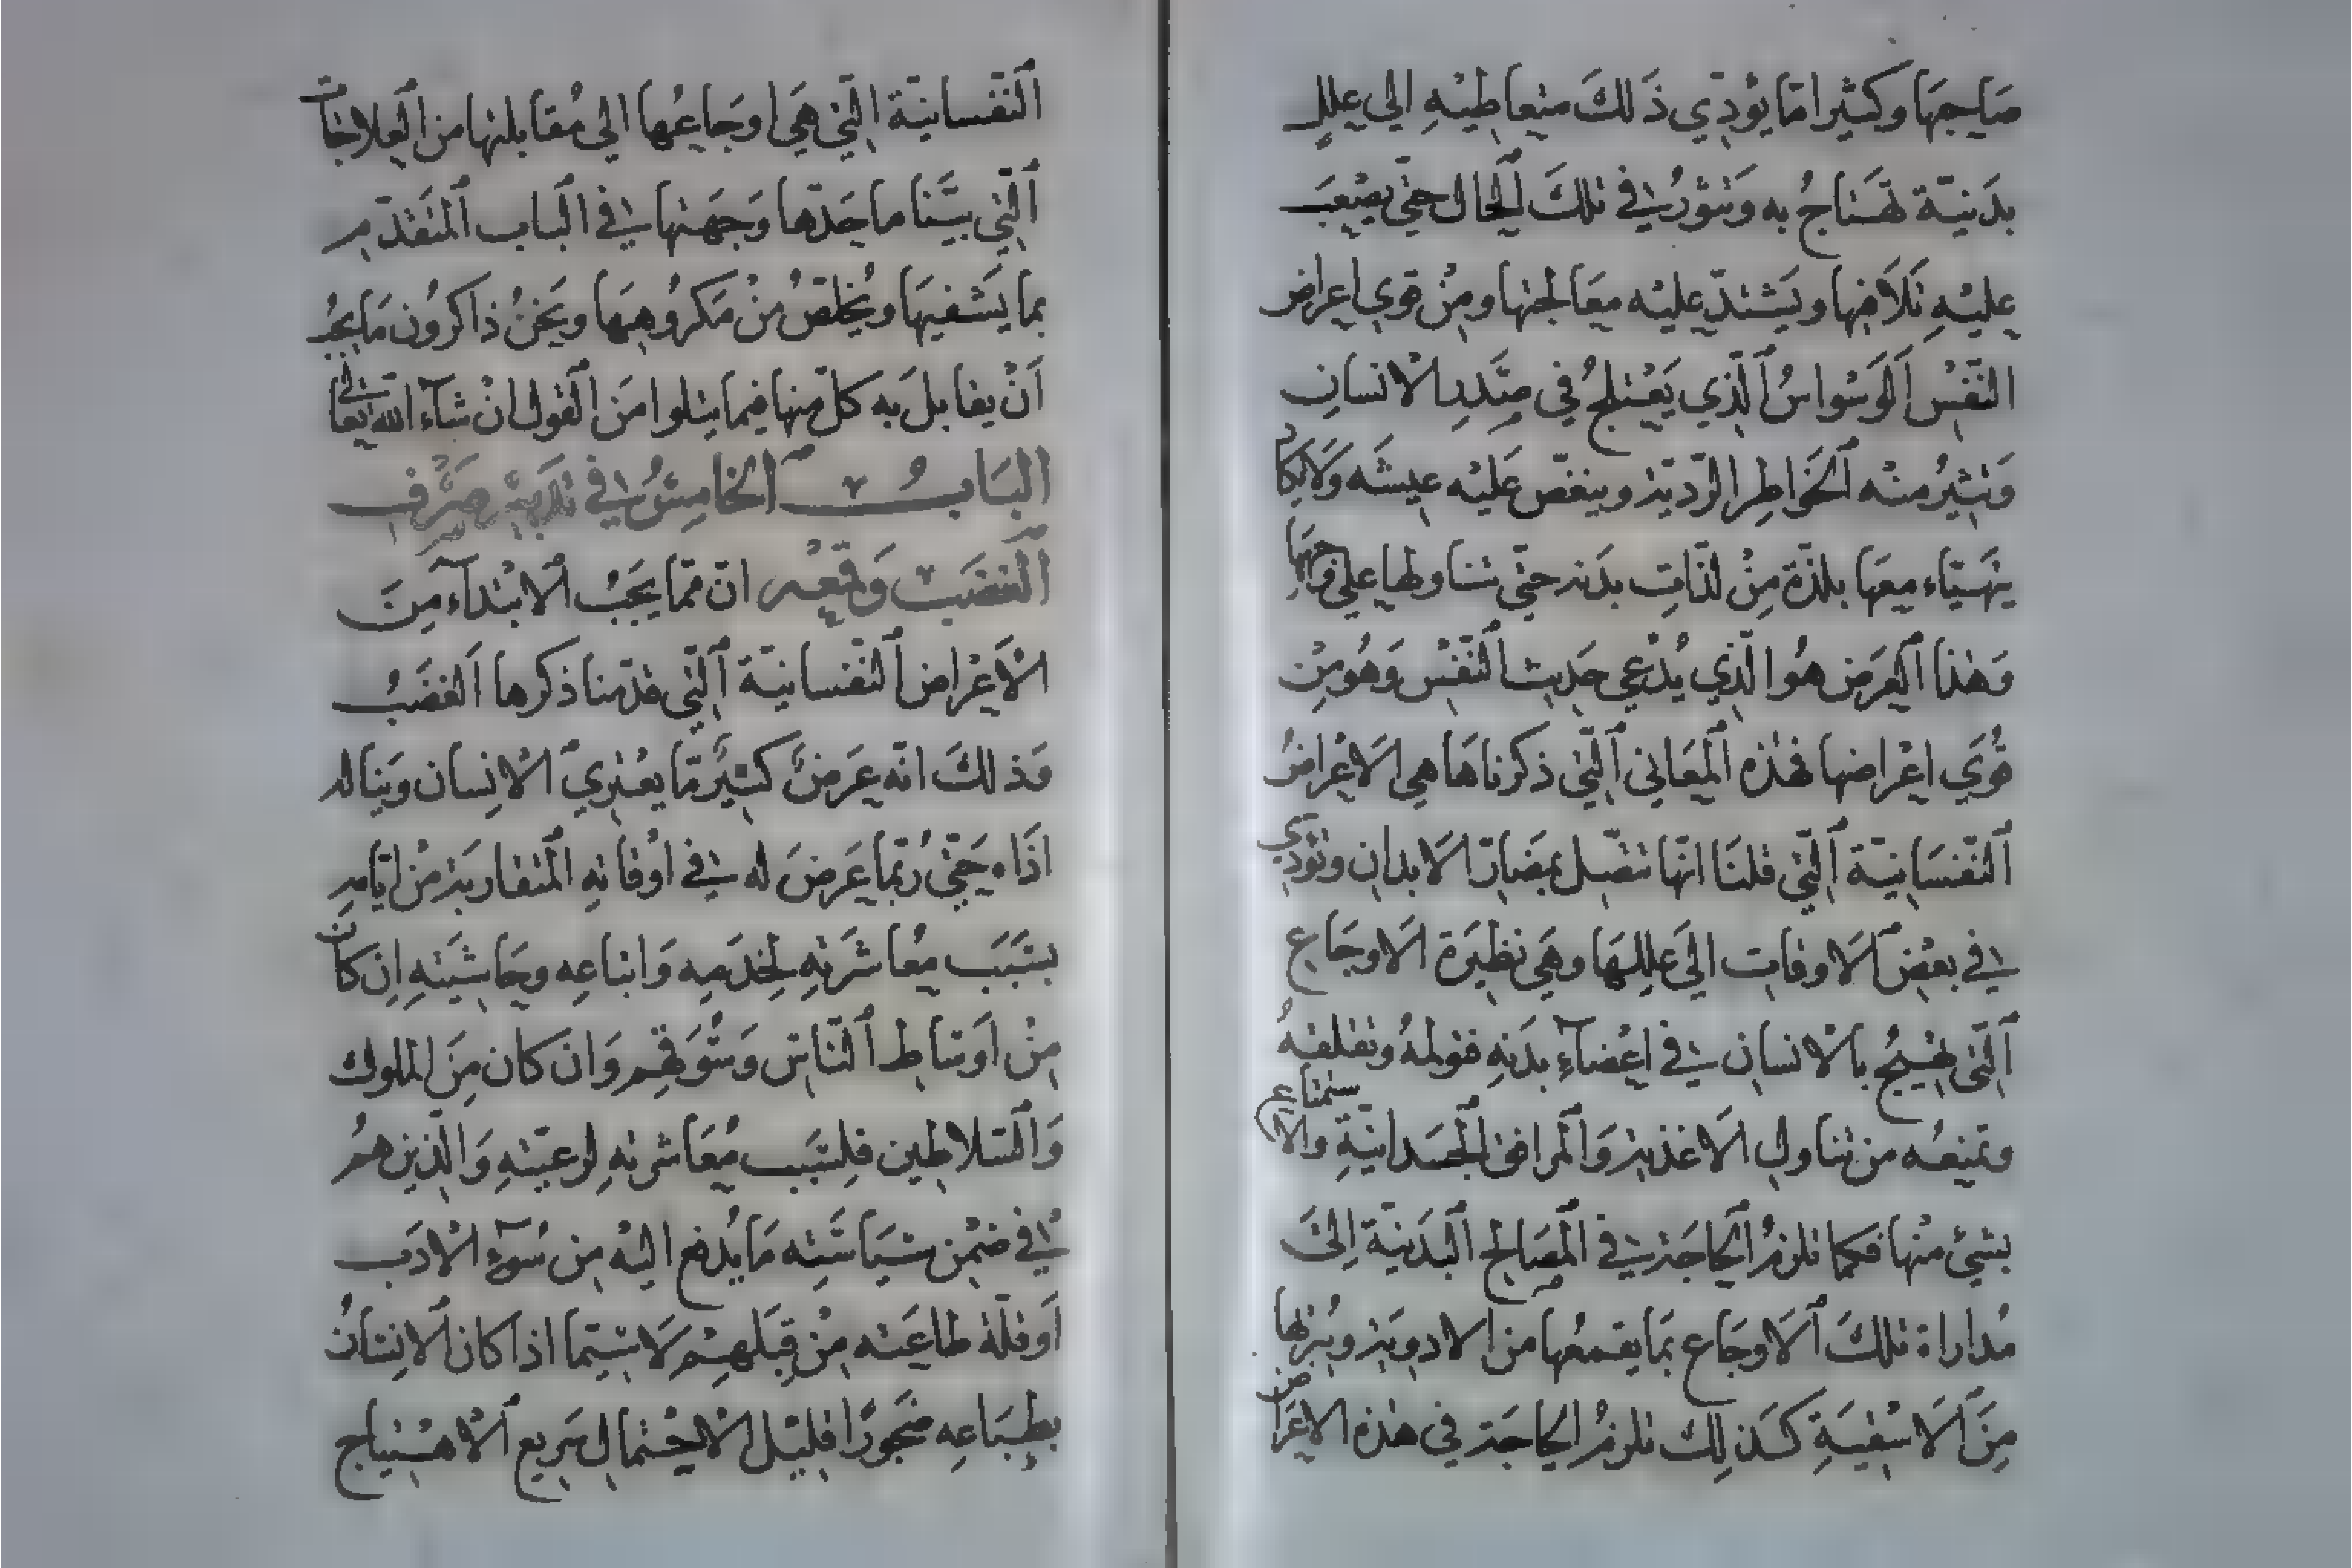 صاحبها وكثيرا ما يؤدّي ذَلكَ متعاطيْهِ الي عللٍ
بدَنيّة تهتاجُ به وَتثورُ في تلكَ الحال حتّي يصْعبَ
عليْهِ تَلَافيها ويَشْتدّ عليْه معَالجتها ومِنْ قوي اعراض
النّفسْ اَلوَسْواسُ اَلّذي يَعْتلجُ في صَدرِ الانسانِ
وَتثيرُ منْه اَلخَواطِر الرّديّة وينغّص عَليْه عيشَه وَلَا يكاد
يتهَيّاء معَها بلذّة مِنْ لذّاتِ بدَنه حتّي يتناولها علي وجهها
وَهٰذا اَلعرَض هوُ الّذي يُدْعي حَديث اَلنّفسْ وَهُو مِنْ
قوَي اعْراضها فهٰذه اَلمعَاني اَلّتي ذكرناهَا هي الاَعْراضُ
اَلنّفسَانيّة اَلّتي قلنَا انّها تتّصل بمضَارّ الاَبدانِ وتؤدّي
في بعْض اَلاَوقاتِ الَي عللهَا وهَي نظيرَة الاَوجَاع
اَلّتي تهيْجُ بالانسان في اعْضاءِ بدَنهِ فتولمهُ وتقلقهُ
وتمنعُه من تناولِ الاَغذية وَاَلمرافق الجسَدانيّةِ والاستمتاع
بشئ منْها فكما تلزمُ اَلحاجَة في اَلمصَالح اَلبدَنيّة اِليَ
مُداراة تلكَ اَلاَوجَاع بمَا يقمعُها من الادويَة ويُبزلها
مِنَ اَلاَشفيَةِ كَذلِك تلزمُ الحاجَة في هٰذه الاعَراض
اَلنّفسانيّة الّتي هَي اوجَاعُها الي مُقابلتها من اَلعِلاجَات
اَلّتي بيَّنا ما حَدّها وَجهَتها في اَلباب اَلمتَقدّمِ
بما يَشفيهَا ويُخلّصُ مِنْ مَكروُهِهَا ونَحنُ ذاكرُون مَا يجبُ
اَنْ يقابلَ به كلّ منها فيما يتلوا منَ اَلقول انْ شَاءَ الله تعالي
البَابُ اَلخامِسُ في تدَبيْر صَرْفِ
اَلغضَب وَقمعْه انّ ممّا يجَبُ اَلابتداَء مِنَ
الاَعْراض اَلنّفسانيّة اَلّتي قدّمنا ذكرها اَلغضَبُ
وَذلكَ انّه عَرَضٌ كثيْرً مّا يعْتري الانِسان وَينالُه
اَذَاه حَتّي رُبّما عَرضَ له في اوْقاتهِ اَلمتقاربَة منْ ايّامهِ
بسَبَب معُاشرَتهِ لِخدَمِه وَاتباعِه وحَاشيَتهِ اِن كان
مِنْ اوَساط اَلنّاس وَسُوَقهِم وَانَ كان مِنَ الملوك
وَاَلسّلاطين فلِسَبب مُعَاشرتهِ لرعيّتهِ وَالّذين همُ
في ضمْن سيَاسَتِه مَا يُدفع اليْه مِن سُوءِ الاْدَب
اوَ قلّة طاعَتِه مِنْ قِبَلهِمْ لَا سيّما اذا كان اَلانِسَانُ
بطبَاعِه ضَجُورًا قليْل الاْحتمال سَريع اَلاْهتياج